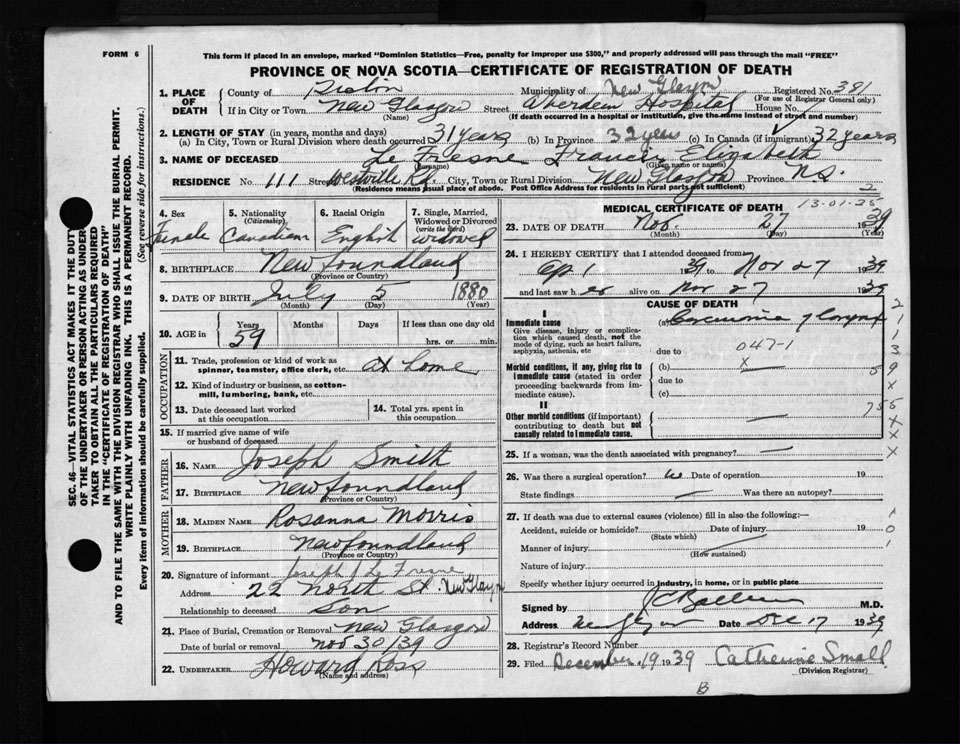 FORM 6
This form if placed in an envelope, marked "Dominion Statistics—Free, penalty for improper use $300," and properly addressed will pass through the mail "FREE"
PROVINCE OF NOVA SCOTIA—CERTIFICATE OF REGISTRATION OF DEATH
1. PLACE OF DEATH
County of Municipality of New Glasgow Registered No. 381
(For use of Registrar General only)
If in City or Town New Glasgow Street Aberdeen Hospital House No.
(Name) (If death occurred in a hospital or institution, give the name instead of street and number)
2. LENGTH OF STAY (in years, months and days)
(a) In City, Town or Rural Division where death occurred 31 years (b) In Province 32 years (c) In Canada (if immigrant) 32 years
3. NAME OF DECEASED Le Fresne Frances Elizabeth
(Surname) (Given name or names)
RESIDENCE No. 111 Street Westville Rd. City, Town or Rural Division New Glasgow Province N.S.
(Residence means usual place of abode. Post Office Address for residents in rural parts not sufficient)
2
13-01-25
4. Sex Female
5. Nationality (Citizenship) Canadian
6. Racial Origin English
7. Single, Married, Widowed or Divorced (write the word) widowed
8. BIRTHPLACE Newfoundland
(Province or Country)
9. DATE OF BIRTH July 5 1880
(Month) (Day) (Year)
10. AGE in Years Months Days If less than one day old
59 hrs. or min.
OCCUPATION
11. Trade, profession or kind of work as spinner, teamster, office clerk, etc. at home
12. Kind of industry or business, as cotton-mill, lumbering, bank, etc.
13. Date deceased last worked at this occupation
14. Total yrs. spent in this occupation
15. If married give name of wife or husband of deceased
FATHER
16. NAME Joseph Smith
17. BIRTHPLACE Newfoundland
(Province or Country)
MOTHER
18. MAIDEN NAME Rosanna Morris
19. BIRTHPLACE Newfoundland
(Province or Country)
20. Signature of informant Joseph J Le Fresne
Address 22 North St. New Glasgow
Relationship to deceased Son
21. Place of Burial, Cremation or Removal New Glasgow
Date of burial or removal Nov 30/39
22. UNDERTAKER Howard Ross
(Name and address)
MEDICAL CERTIFICATE OF DEATH
23. DATE OF DEATH Nov. 27 1939
(Month) (Day) (Year)
24. I HEREBY CERTIFY that I attended deceased from
1 1939 to Nov 27 1939
and last saw her alive on Nov 27 1939
CAUSE OF DEATH
I
Immediate cause
Give disease, injury or complication which caused death, not the mode of dying, such as heart failure, asphyxia, asthenia, etc
(a)
due to 047-1
Morbid conditions, if any, giving rise to immediate cause (stated in order proceeding backwards from immediate cause)
(b) x
due to
(c)
II
Other morbid conditions (important) contributing to death but not causally related to immediate cause.
25. If a woman, was the death associated with pregnancy?
26. Was there a surgical operation? no Date of operation 19
State findings Was there an autopsy?
27. If death was due to external causes (violence) fill in also the following:—
Accident, suicide or homicide? Date of injury 19
(State which)
Manner of injury
(How sustained)
Nature of injury
Specify whether injury occurred in industry, in home, or in public place
Signed by M.D.
Address Date Dec 17 1939
28. Registrar's Record Number
29. Filed December 19 1939 Catherine Small
(Division Registrar)
B
SEC. 46—VITAL STATISTICS ACT MAKES IT THE DUTY
OF THE UNDERTAKER OR PERSON ACTING AS UNDER-
TAKER TO OBTAIN ALL THE PARTICULARS REQUIRED
IN THE "CERTIFICATE OF REGISTRATION OF DEATH"
AND TO FILE THE SAME WITH THE DIVISION REGISTRAR WHO SHALL ISSUE THE BURIAL PERMIT.
WRITE PLAINLY WITH UNFADING INK. THIS IS A PERMANENT RECORD.
Every item of information should be carefully supplied. (See reverse side for instructions.)